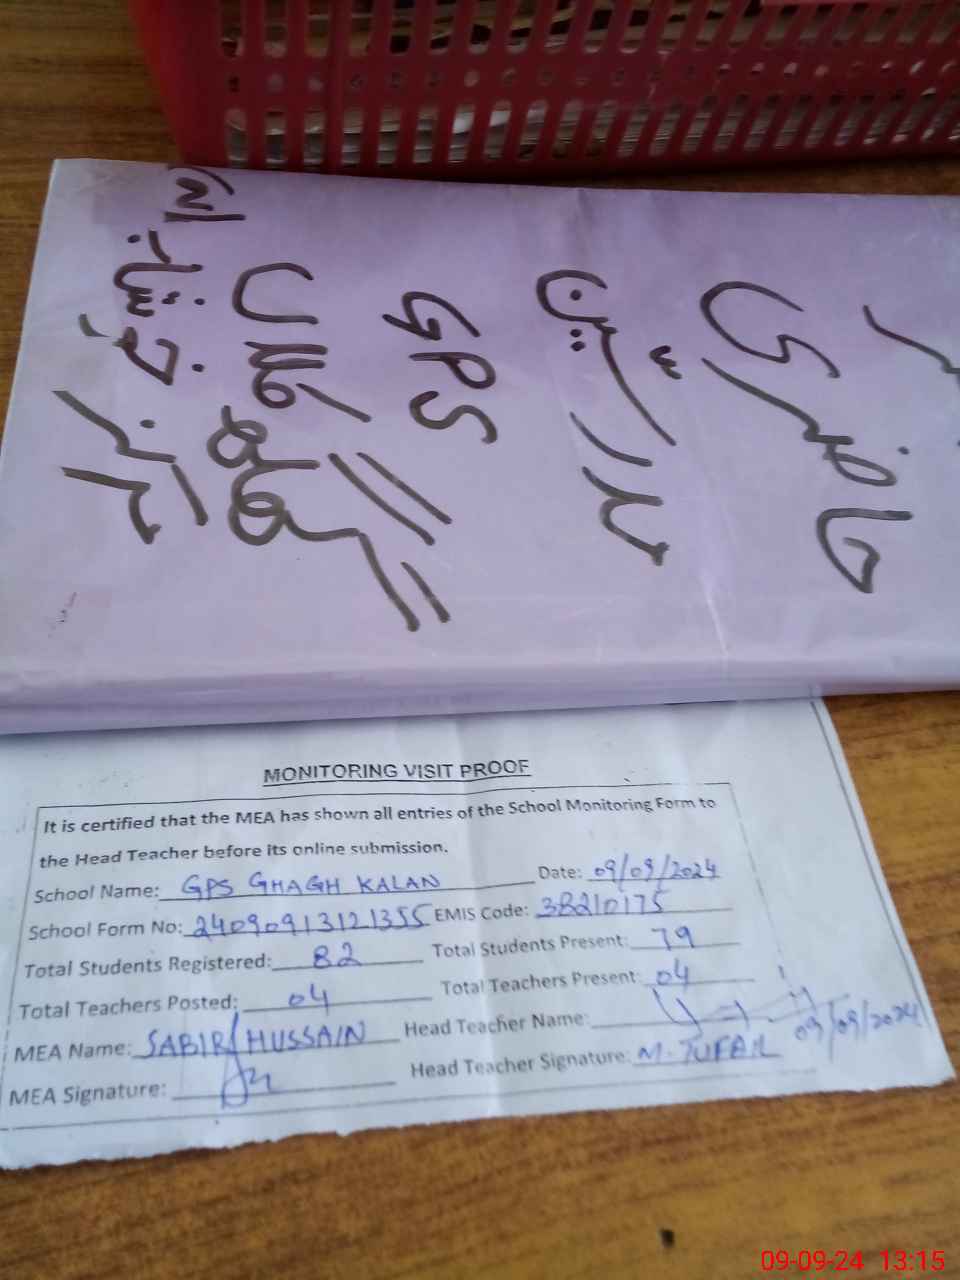 حاضری
مدارسین
GPS
گھاگھ کلاں
مرکز خوشاب
MONITORING VISIT PROOF
It is certified that the MEA has shown all entries of the School Monitoring Form to
the Head Teacher before its online submission.
School Name: GPS GHAGH KALAN Date: 09/09/2024
School Form No: 24090913121355 EMIS Code: 38210175
Total Students Registered: 82 Total Students Present: 79
Total Teachers Posted: 04 Total Teachers Present: 04
MEA Name: SABIR HUSSAIN Head Teacher Name:
MEA Signature: Head Teacher Signature: M. TUFAIL 09/09/2024
09-09-24 13:15